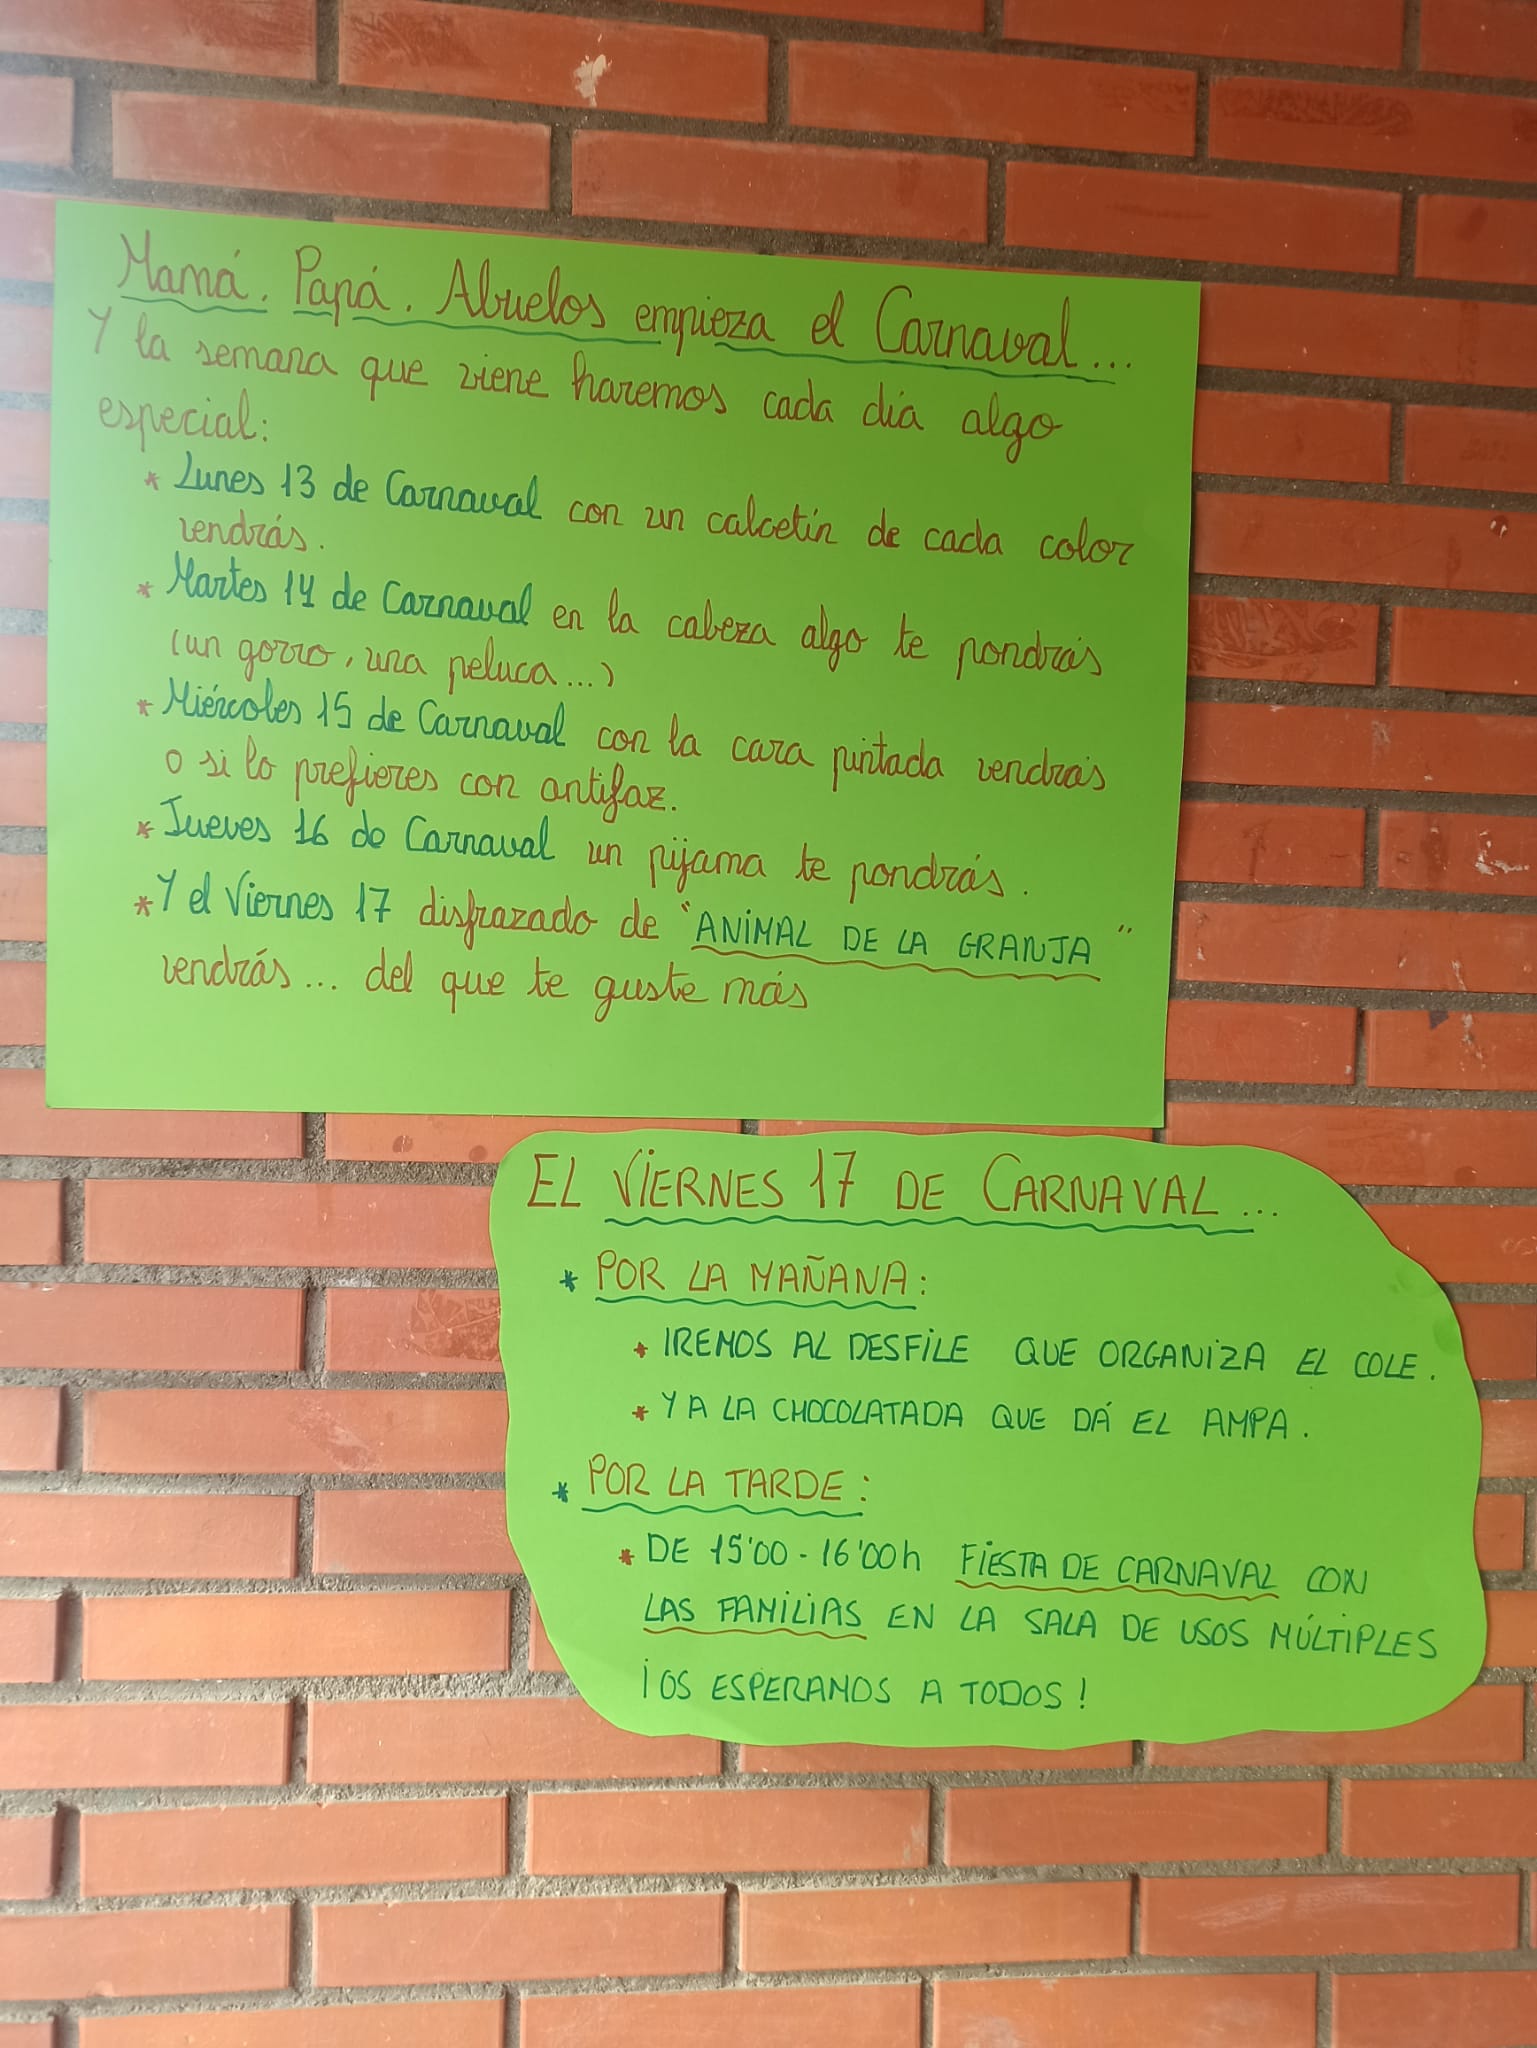 Mamá. Papá. Abuelos empieza el Carnaval...
Y la semana que viene haremos cada día algo
especial:
* Lunes 13 de Carnaval con un calcetín de cada color
vendrás.
* Martes 14 de Carnaval en la cabeza algo te pondrás
(un gorro, una peluca...)
* Miércoles 15 de Carnaval con la cara pintada vendrás
o si lo prefieres con antifaz.
* Jueves 16 de Carnaval un pijama te pondrás.
* Y el Viernes 17 disfrazado de "ANIMAL DE LA GRANJA"
vendrás... del que te guste más
EL VIERNES 17 DE CARNAVAL...
* POR LA MAÑANA:
* IREMOS AL DESFILE QUE ORGANIZA EL COLE.
* Y A LA CHOCOLATADA QUE DÁ EL AMPA.
* POR LA TARDE:
* DE 15'00 - 16'00h FIESTA DE CARNAVAL CON
LAS FAMILIAS EN LA SALA DE USOS MÚLTIPLES
¡OS ESPERAMOS A TODOS!